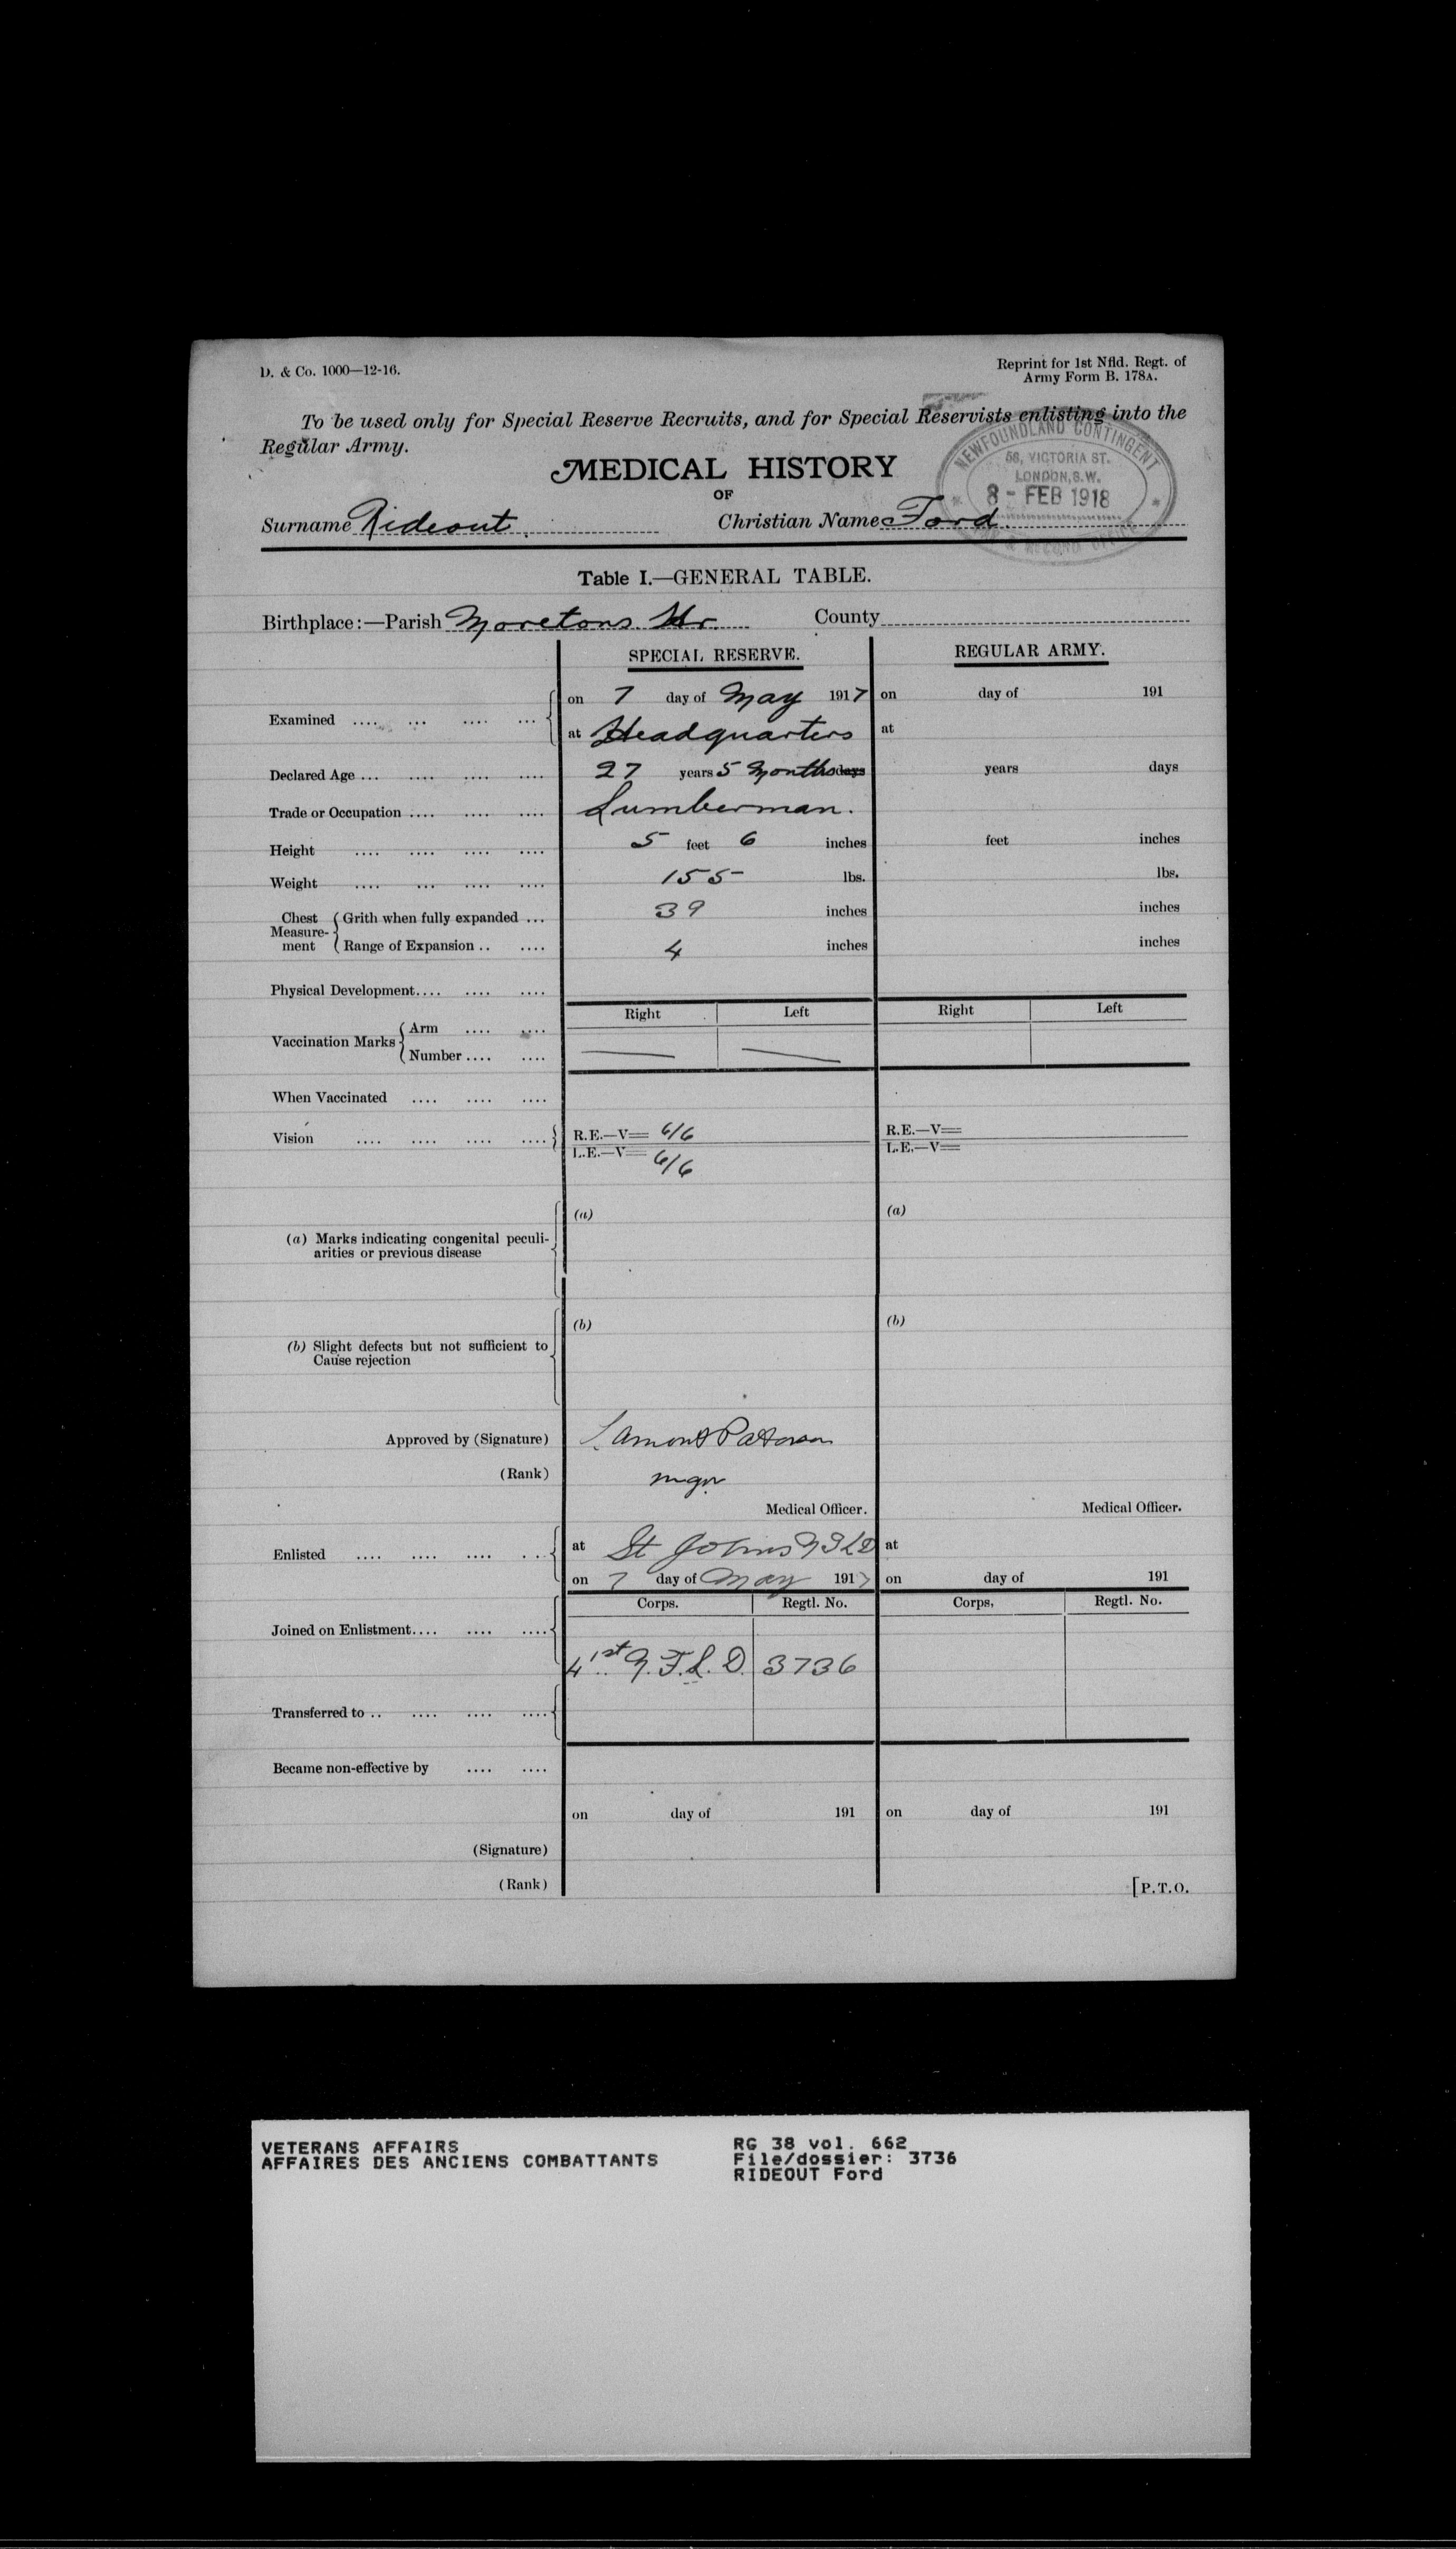 D. & Co. 1000—12-16.
Reprint for 1st Nfld. Regt. of
Army Form B. 178A.
To be used only for Special Reserve Recruits, and for Special Reservists enlisting into the
Regular Army.
NEWFOUNDLAND CONTINGENT
58, VICTORIA ST.
LONDON, S.W.
8 - FEB 1918
& RECORD OFFICE
MEDICAL HISTORY
OF
Surname Rideout Christian Name Ford
Table I.—GENERAL TABLE.
Birthplace:—Parish Moretons Hr. County
SPECIAL RESERVE. REGULAR ARMY.
Examined .... ... .... ... on 7 day of May 1917 on day of 191
at Headquarters at
Declared Age ... .... .... .... 27 years 5 Months days years days
Trade or Occupation .... .... .... Lumberman.
Height .... .... .... .... 5 feet 6 inches feet inches
Weight .... ... .... .... 155 lbs. lbs.
Chest Measurement Grith when fully expanded ... 39 inches inches
Range of Expansion .. .... 4 inches inches
Physical Development.... .... ....
Right Left Right Left
Vaccination Marks Arm .... ....
Number .... ....
When Vaccinated .... .... ....
Vision .... .... .... .... R.E.—V= 6/6 R.E.—V=
L.E.—V= 6/6 L.E.—V=
(a) (a)
(a) Marks indicating congenital peculi-
arities or previous disease
(b) (b)
(b) Slight defects but not sufficient to
Cause rejection
Approved by (Signature) Lamont Paterson
(Rank) Major
Medical Officer. Medical Officer.
Enlisted .... .... .... ... at St Johns NFLD at
on 7 day of May 1917 on day of 191
Corps. Regtl. No. Corps, Regtl. No.
Joined on Enlistment.... .... ....
1st N.F.L.D. 3736
Transferred to .. .... ....
Became non-effective by .... ....
on day of 191 on day of 191
(Signature)
(Rank)
[P.T.O.
VETERANS AFFAIRS
AFFAIRES DES ANCIENS COMBATTANTS
RG 38 vol. 662
File/dossier: 3736
RIDEOUT Ford